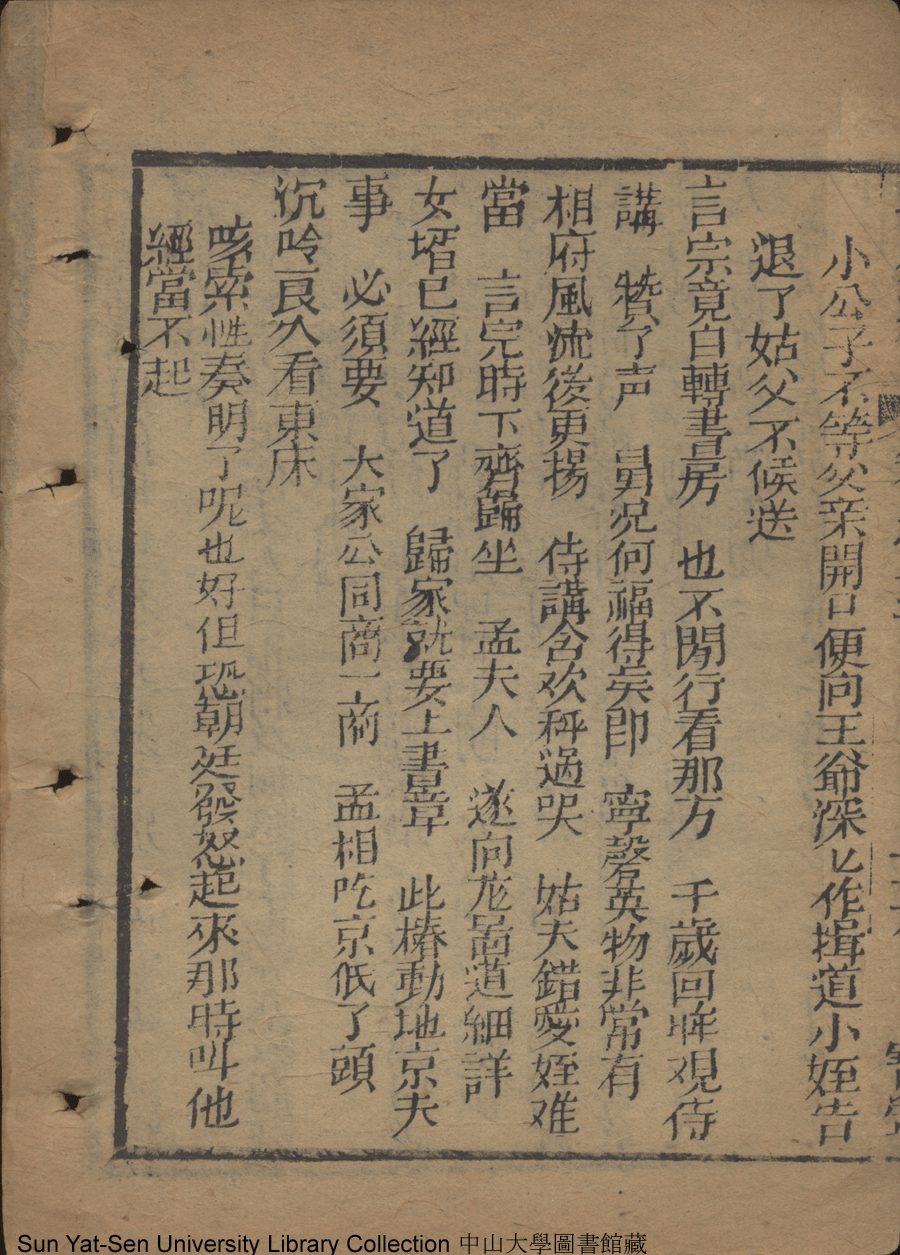 小公子不等父亲開口便向王爺深〻作揖道小姪告
退了姑父不候送
言宗竟自轉書房　也不閒行看那方　千歲回眸覌侍
講　賛了声　舅兄何福得矣郎　寧馨英物非常有
相府風流後更揚　侍講含欢称過奖　姑夫錯愛姪难
當　言完時下齊歸坐　孟夫人　遂向龙图道細詳
女壻已經知道了　歸家就要上書章　此樁動地京夫
事　必須要　大家公同商一商　孟相吃京低了頭
沉吟良久看東床
咳索性奏明了呢也好但恐朝廷發怒起來那時叫他
經當不起
Sun Yat-Sen University Library Collection 中山大學圖書館藏